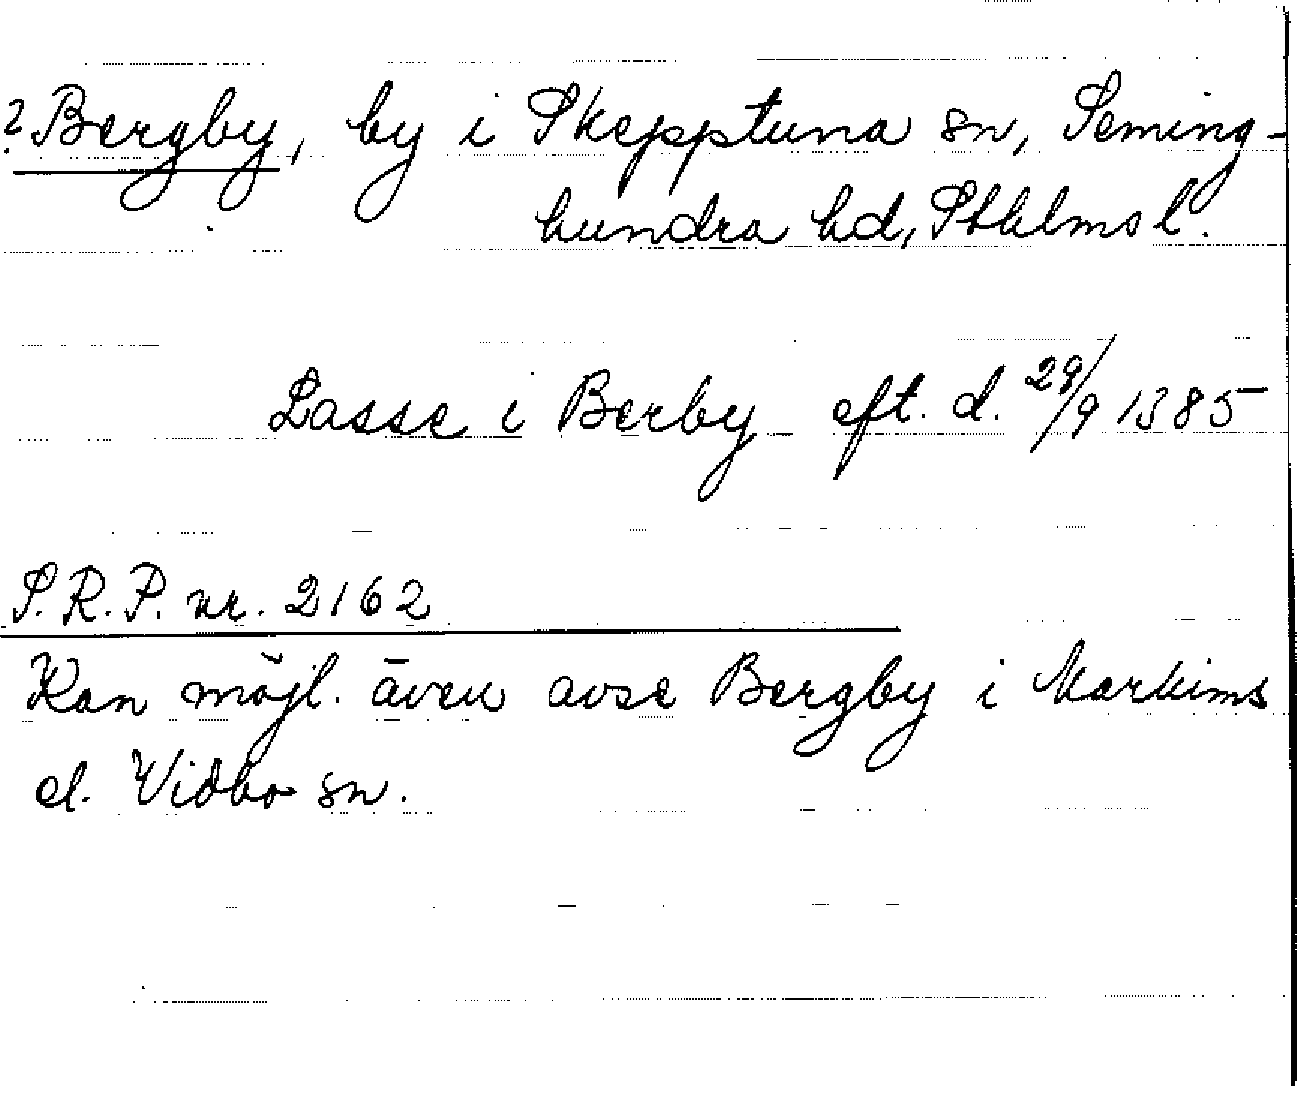 ? Bergby, by i Skepptuna sn, Seming-
hundra hd, Sthlms l.
Lasse i Berby eft. d. 29/9 1385
S.R.P. nr. 2162
Kan möjl. även avse Bergby i Markims
el. Vidbo sn.